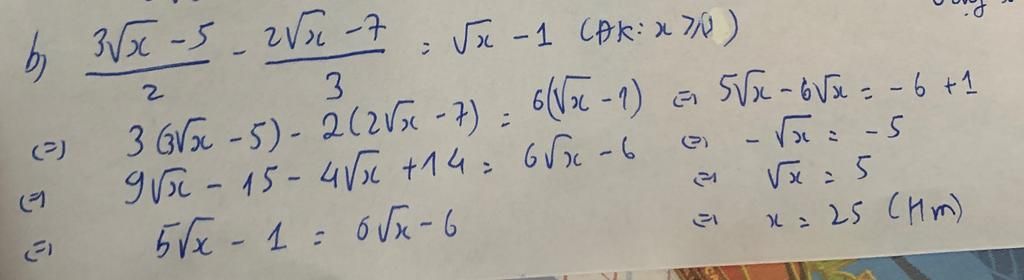 b) (3√x - 5)/2 - (2√x - 7)/3 = √x - 1 (ĐK: x ≥ 0)
(=) 3(3√x - 5) - 2(2√x - 7) = 6(√x - 1)
(=) 9√x - 15 - 4√x + 14 = 6√x - 6
(=) 5√x - 1 = 6√x - 6
(=) 5√x - 6√x = -6 + 1
(=) - √x = -5
(=) √x = 5
(=) x = 25 (tm)